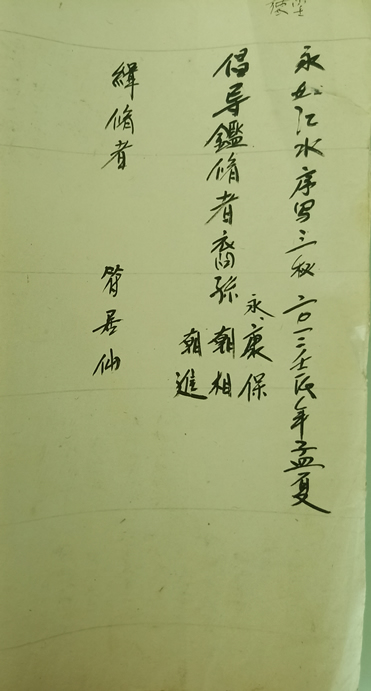 永如江水序写三秋 二〇一二壬辰年孟夏
倡导鑑脩者裔孫
永、康保
朝相
朝進
緝脩者 符居仙